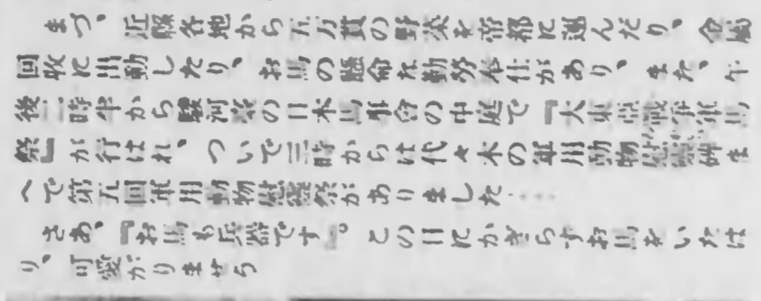 まづ、近縣各地から五万貫の野菜を帝都に運んだり、金属
回收に出動したり、お馬の懸命な勤労奉仕があり、また、午
後一時半から駿河台の日本馬事会の中庭で『大東亜戦争軍馬
祭』が行はれ、ついで三時からは代々木の軍用動物慰霊碑ま
へで第五回軍用動物慰霊祭がありました……
さあ、『お馬も兵器です』。この日にかぎらずお馬をいたは
り、可愛がりませう